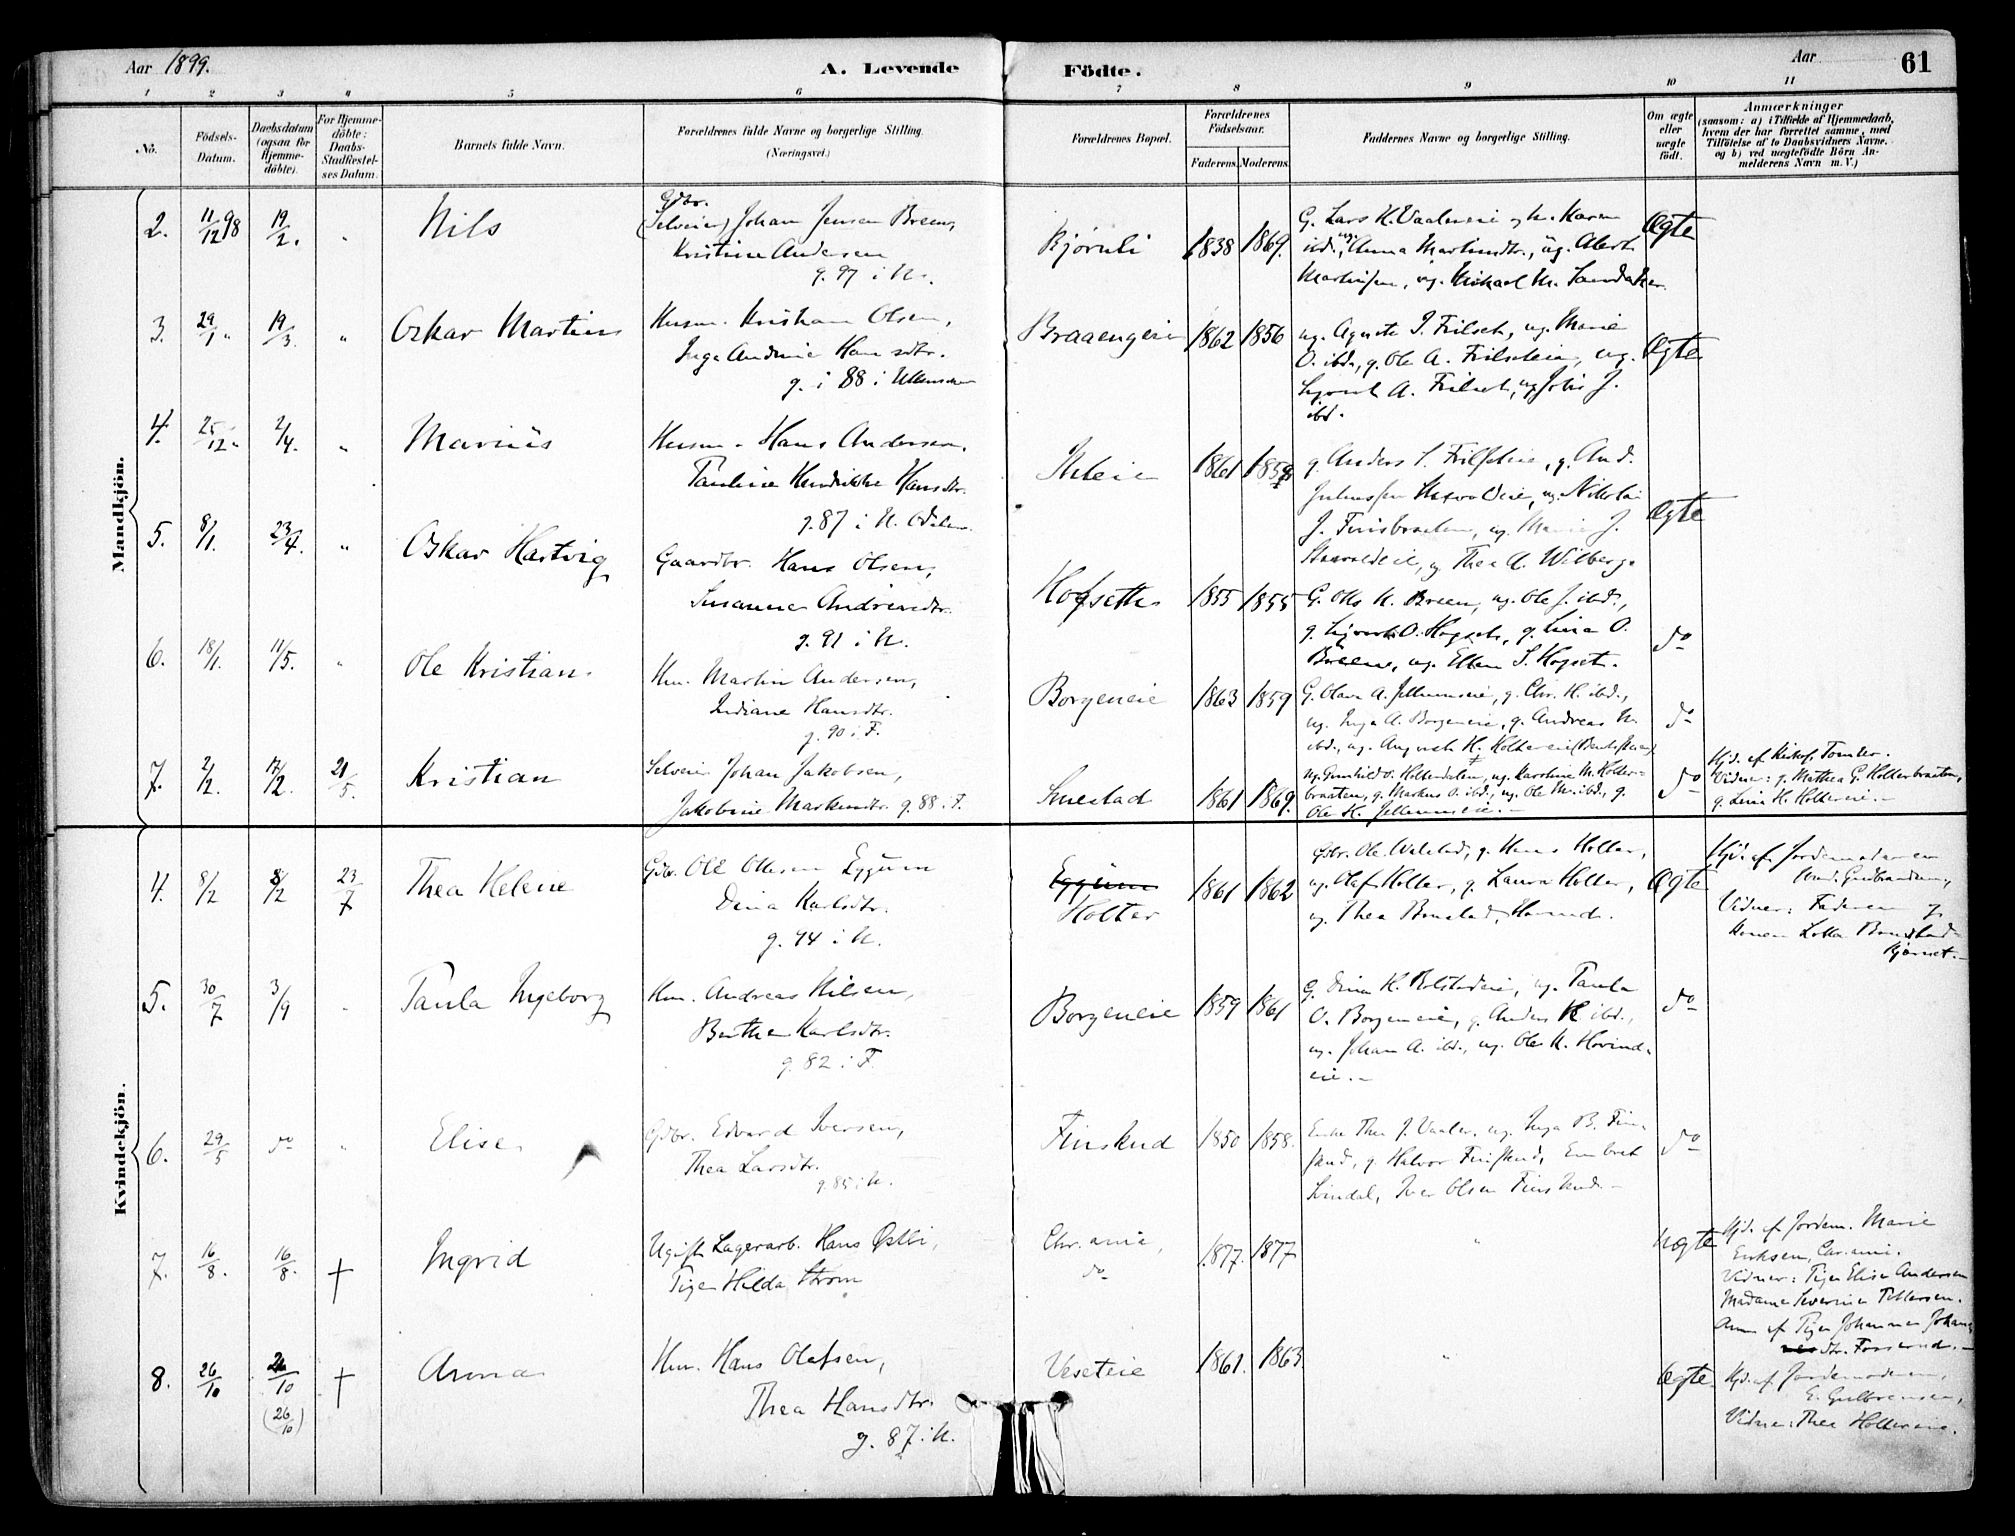 Aar 1899.
A. Levende Födte.
Aar
61
1 2 3 4 5 6 7 8 9 10 11
No.
Födsels-Datum.
Daabsdatum (ogsaa for Hjemmedöbte).
For Hjemmedöbte: Daabs-Stadfæstelses Datum.
Barnets fulde Navn.
Forældrenes fulde Navne og borgerlige Stilling. (Næringsvei.)
Forældrenes Bopæl.
Forældrenes Födselsaar.
Faderens. Moderens.
Faddernes Navne og borgerlige Stilling.
Om ægte eller uægte födt.
Anmærkninger
(saasom: a) i Tilfælde af Hjemmedaab, hvem der har forrettet samme, med Tilföielse af to Daabsvidners Navne. og b) ved uægtefödte Börn Anmelderens Navn m. V.)
Mandkjön.
2. 11/12 98 19/2. Nils
Gdbr. (Selveier) Johan Jensen Breen,
Kristine Andersen
g. 97 i N.
Bjørnli 1838 1869.
G. Lars K. Vaaleneie og h. Karen
ibd., ug. Anna Martinsdtr., ug. Albert
Martinsen, ug. Mikael M. Sandaker
Ægte
3. 29/1 19/3. Oskar Martin
Husm. Kristian Olsen,
Inga Andrine Hansdtr.
g. i 88 i Ullensaker
Braaengeie 1862 1856
ug. Agnete J. Frilset, ug. Marie
O. ibd., g. Ole A. Frilseteie, ug.
Syvert A. Frilset, ug. Johs J.
ibd.
Ægte
4. 25/12 2/4. Marius
Husm. Hans Andersen,
Pauline Hendrikke Hansdtr.
g. 87 i N. Odalen
1861 1859
g. Anders S. Frilseteie, g. And.
ug. Nikolai
ug. Marie J.
ug Thea A. Wilberg.
Ægte
5. 8/1. 23/4. Oskar Hartvig
Gaardbr. Hans Olsen,
Susanne Andreasdtr.
g. 91 i N.
Hofseth 1855 1855
G. Ole K. Breen, ug. Ole J. ibd.,
g. Syvert O. Hogset, g. Lina O.
Breene, ug. Ellen S. Hogset.
do
6. 18/1. 11/5. Ole Kristian
Hm. Martin Andersen,
Indiane Hansdtr.
g. 90 i F.
Borgeneie 1863 1859
G. Olava A. Jellumseie, g. Chr. H. ibd.,
ug. Inga A. Borgeneie, g. Andreas N.
ibd., ug. August H. Koltereie
do
7. 2/2. 17/2. 21/5. Kristian
Selveier Johan Jakobsen,
Jakobine Markusdtr. g. 88 i F.
Smestad 1861 1869.
ug. Gunhild O. Holterdalen, ug. Karoline M. Holter-
braaten, g. Markus O. ibd., ug. Ole M. ibd., g.
Ole H. Jellumseie.
do
Hjd. af Kirkes. Tomter.
Vidner: g. Mathea G. Holterbraaten,
g. Lina H. Holtereie.
Kvindekjön.
4. 8/2 8/2 23/7 Thea Helene
Gdbr. Ole Ottesen Eggum
Dina Karlsdtr.
g. 94 i N.
Eggum
Holter
1861 1862
Gdbr. Ole Walstad, g. Hans Holter,
ug. Olaf Holter, g. Laura Holter,
ug. Thea Bonstad,
Ægte
Hjd. af Jordemoderen
Gudbrandsen,
Vidner: Faderen og
Konen Lotta
5. 30/7 3/9 Paula Ingeborg
Hm. Andreas Nilsen,
Berthe Karlsdtr.
g. 82 i F.
Borgeneie 1859 1861
G. Dina K. Bolstadeie, ug. Paula
O. Borgeneie, g. Anders K ibd.,
ug. Johan A. ibd., ug. Ole K. Hovind-
eie.
do
6. 29/5 do Elise
Gdbr. Edvard Iversen,
Thea Larsdtr.
g. 85 i N.
Finskud 1850 1858.
Enke Thea J. Vaaler, ug. Inga B. Fin-
skud, g. Halvor Finskud, Embret
Lindal, Iver Olsen Finskud.
do
7. 16/8. 16/8. † Ingrid
Ugift Lagerarb. Hans Østbi,
Pige Hilda Strøm
Chr.ania,
do
1877. 1877
Uægte
Hjd. af Jordem. Marie
Eriksen, Chr.ania.
Vidner: Pige Elise Andersen
Madame Severine Pettersen.
Anm. af Pige Johanne Johans-
dtr. Fosserud.
8. 26/10 26/10 (26/10) † Anna
Hm. Hans Olafsen,
Thea Hansdtr.
g. 87 i N.
Veseteie 1861. 1863.
Ægte.
Hjd. af Jordemoderen,
E. Gulbrensen,
Vidne: Thea Holtereie.